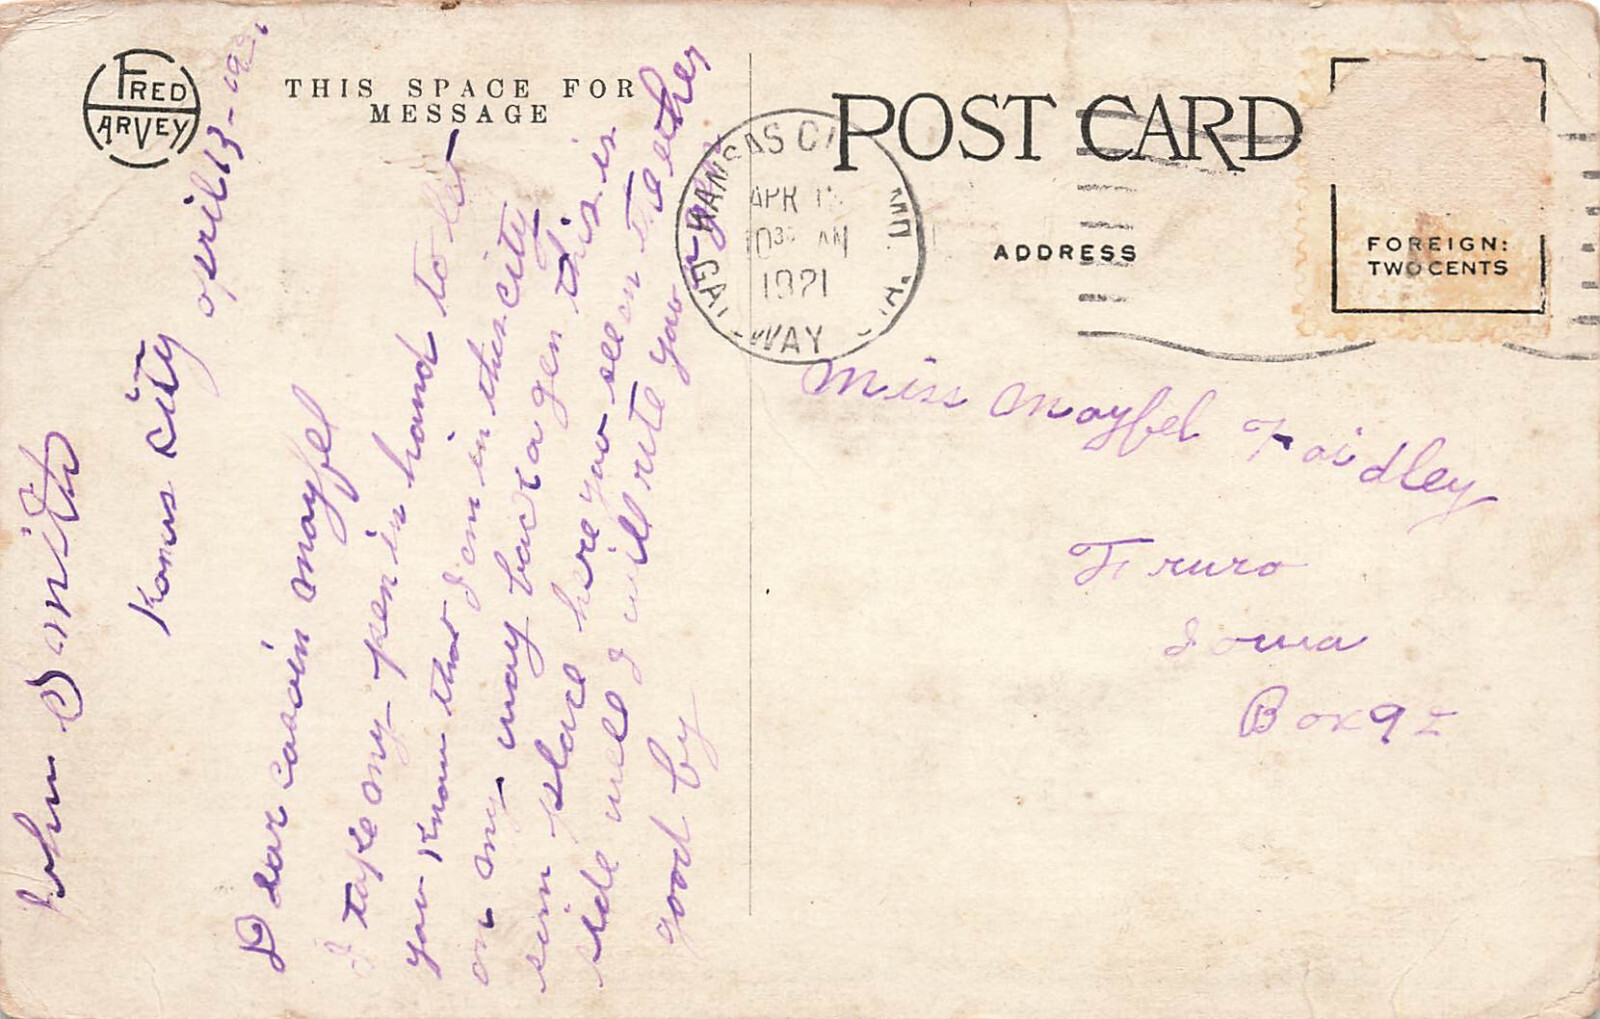 FRED
HARVEY
THIS SPACE FOR
MESSAGE
POST CARD
ADDRESS
FOREIGN:
TWO CENTS
KANSAS CI
APR
1030 AM
1921
WAY
John Smith
Kans City april 13-19
Dear cousin mayfel
I take my pen in hand to let
you know that I em in this city
on my way back agen this is
sum place here you see on the other
side well I will rite you
good by
Miss Mayfel Faidley
Truro
Iowa
Box 92